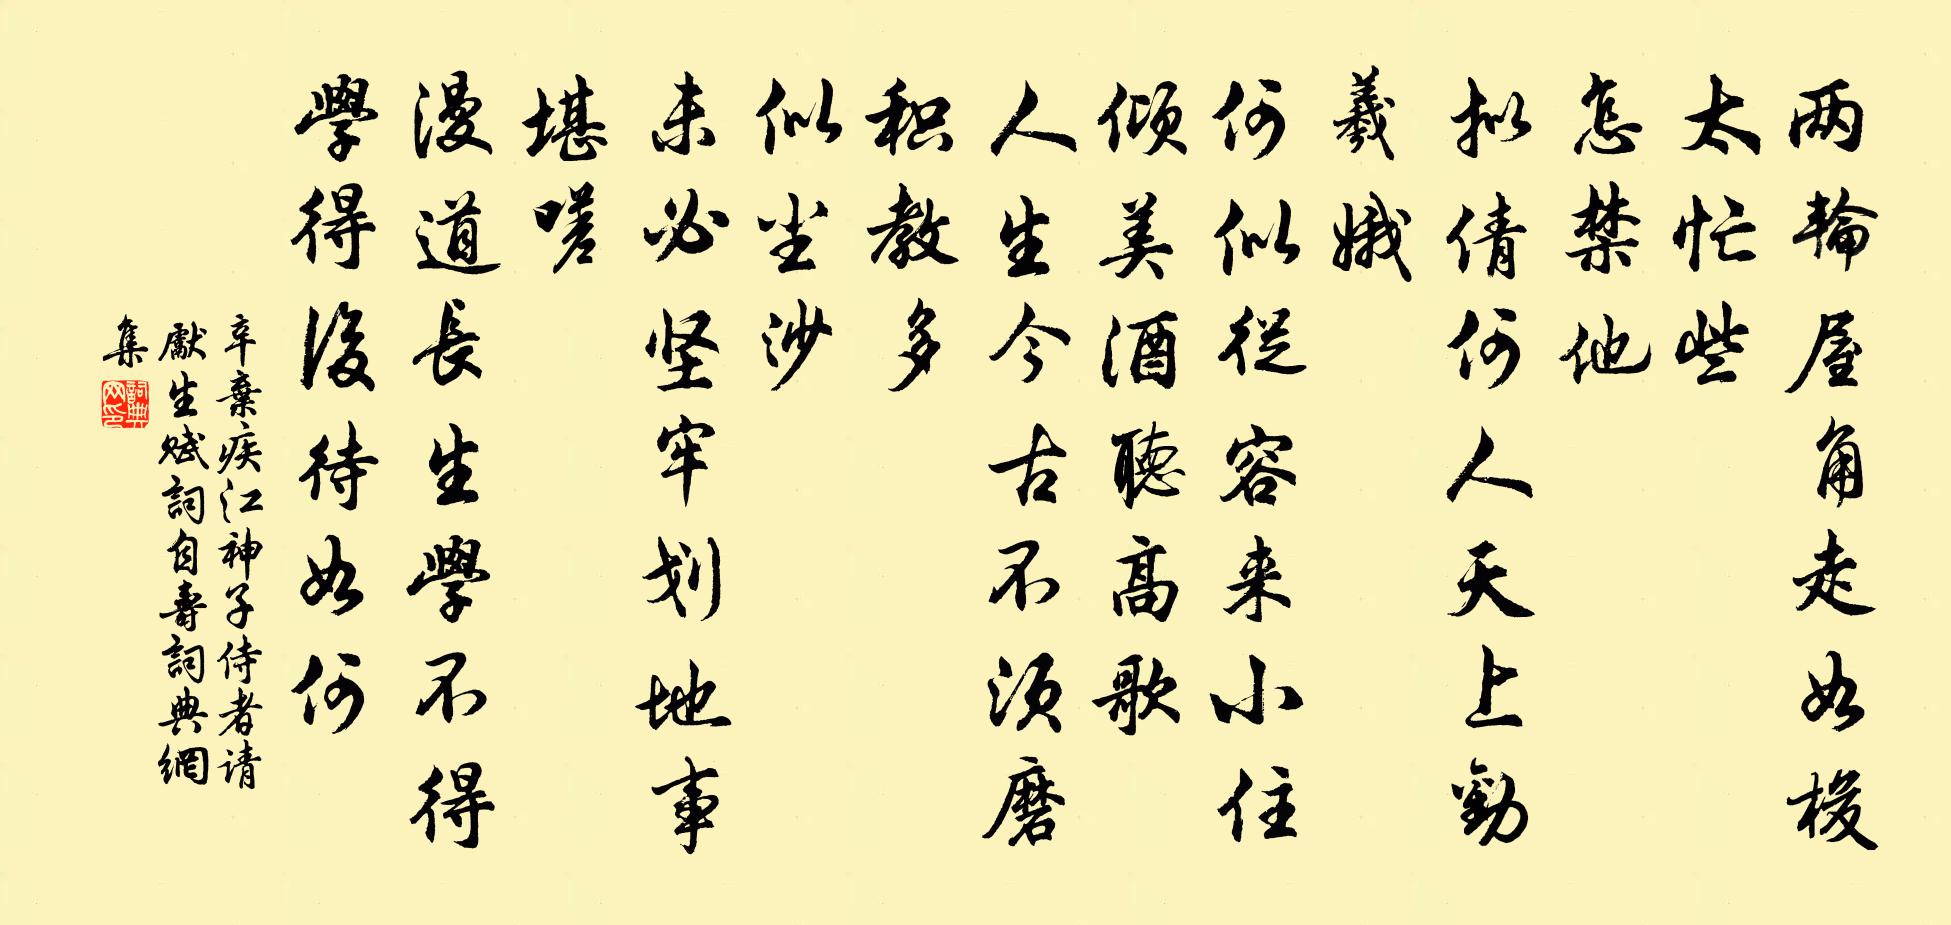 两輪屋角走如梭
太忙些
怎禁他
拟倩何人天上勸
羲娥
何似従容来小住
倾美酒聽高歌
人生今古不须磨
积教多
似尘沙
未必坚牢划地事
堪嗟
漫道長生學不得
學得後待如何
辛棄疾江神子侍者请
獻生赋詞自壽詞典網
集
詞典网印